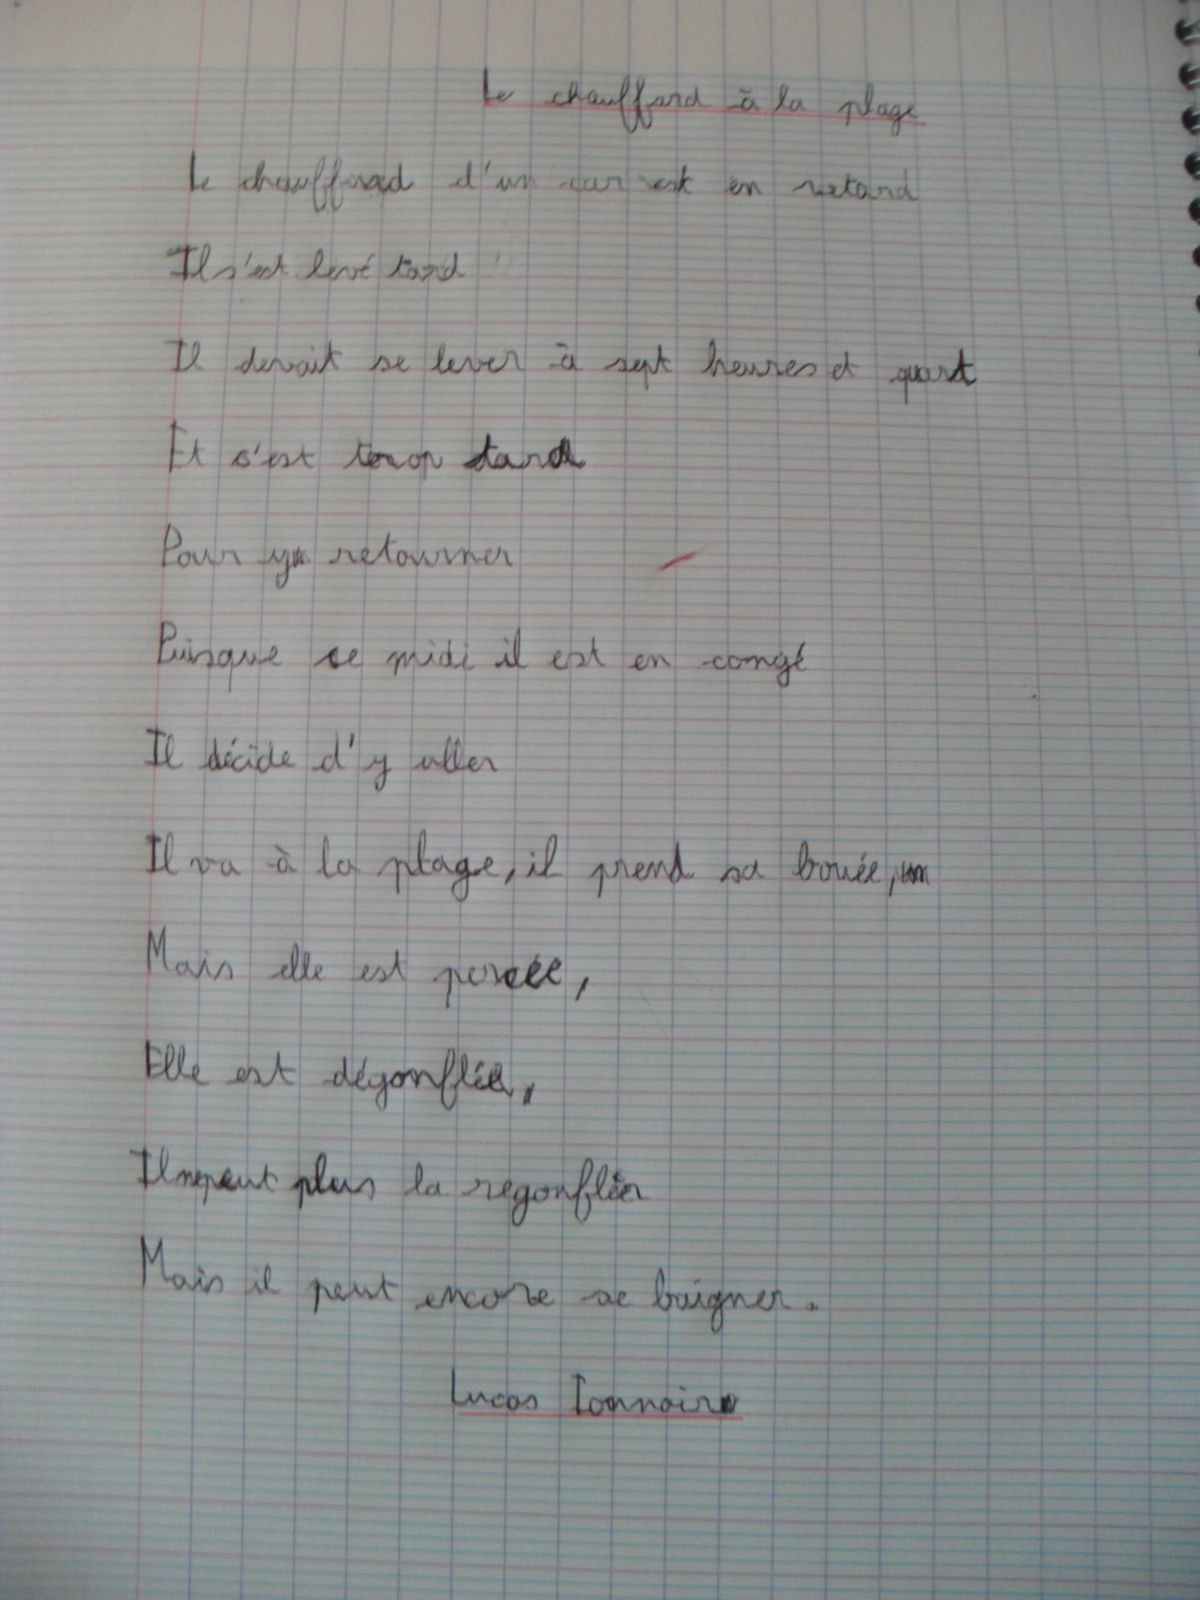 Le chauffard à la plage
Le chauffard d'un car est en retard
Il s'est levé tard
Il devait se lever à sept heures et quart
Et s'est trop tard
Pour y retourner
Puisque ce midi il est en congé
Il décide d'y aller
Il va à la plage, il prend sa bouée,
Mais elle est percée,
Elle est dégonflée,
Il ne peut plus la regonfler
Mais il peut encore se baigner.
Lucas